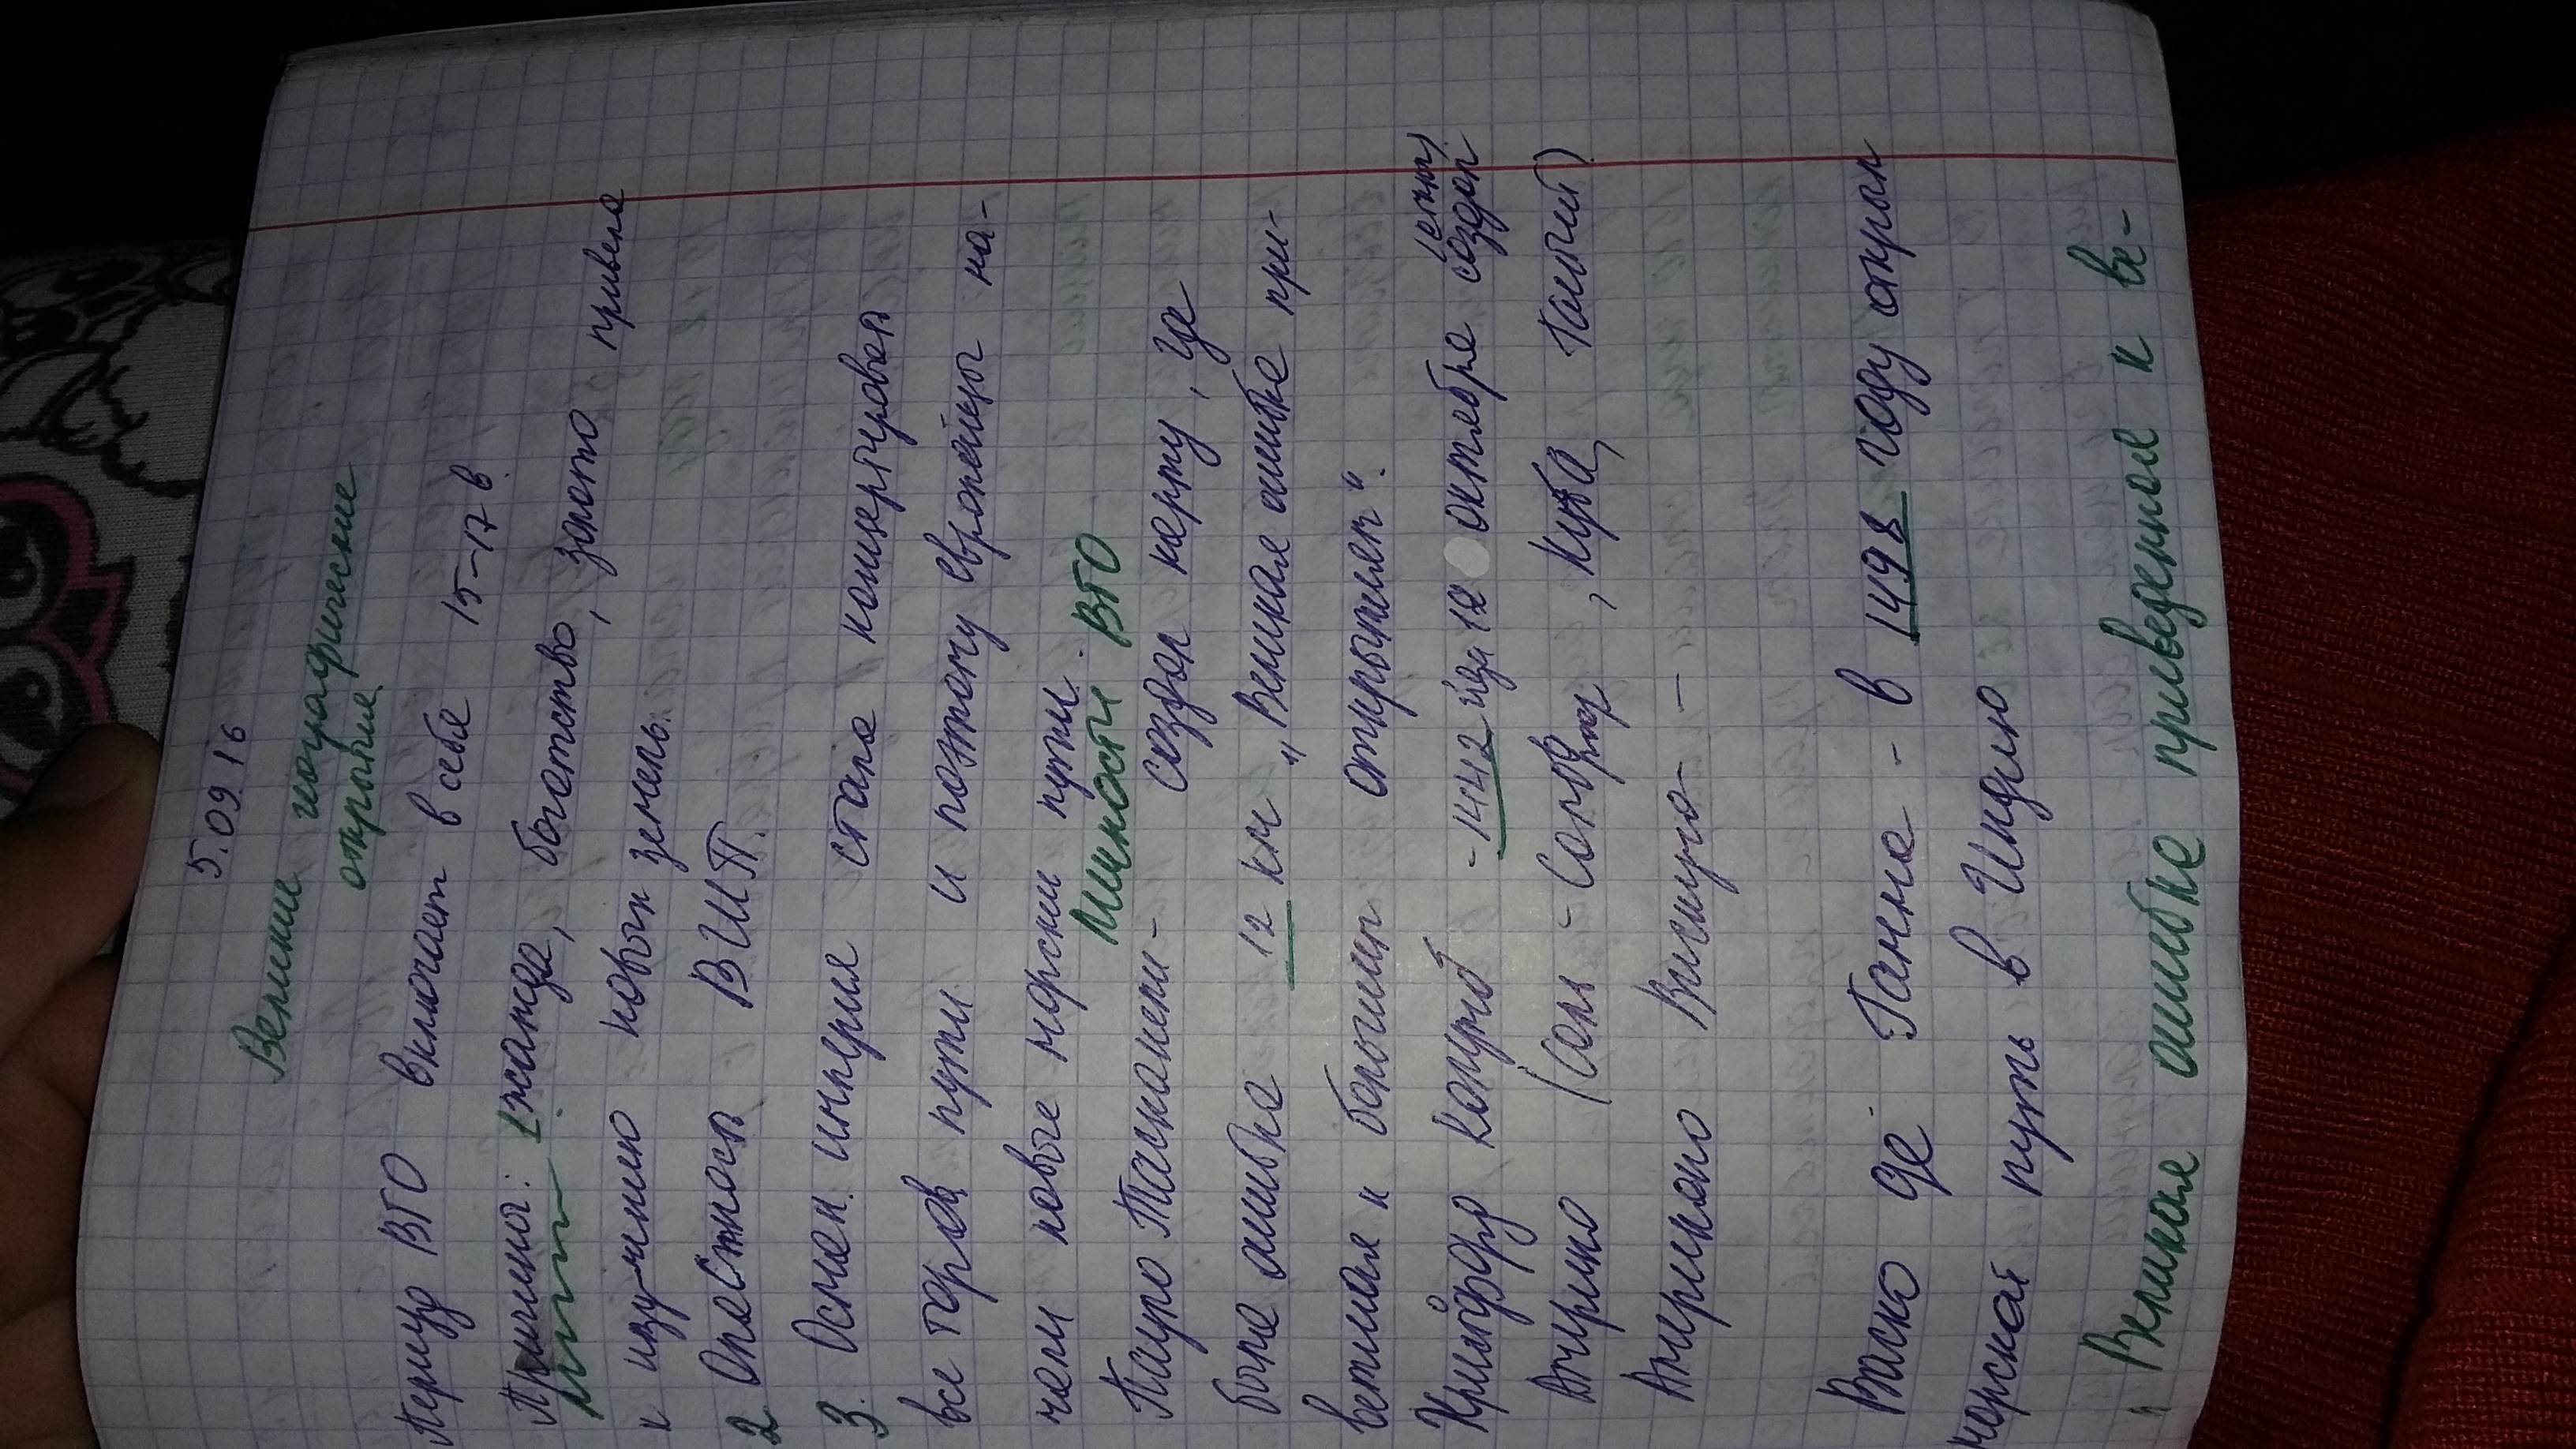 5.09.16
Великие географические
открытия
Период ВГО включает в себя 15-17 в.
Причины: 1. жажда, богатство, золото привела
к изучению новых земель.
2 Опасность ВШП.
3. Осман. империя стала контролировать
все торгов пути и поэтому европейцы на-
чали новые морски пути.
Личности ВГО
Пауло Тасканели - создал карту, где
была ошибка 12 км „Великая ошибка при-
ветшая к большим открытиям".
Кристофор Колумб - 1442 года 12 октября создал
Америко (Саль - Сальвадор, Куба, Гаити)
Американо Виспучо -
Васко де Гамма - в 1498 году открыл
морской путь в Индию
" Великая ошибка приведенная к ве-